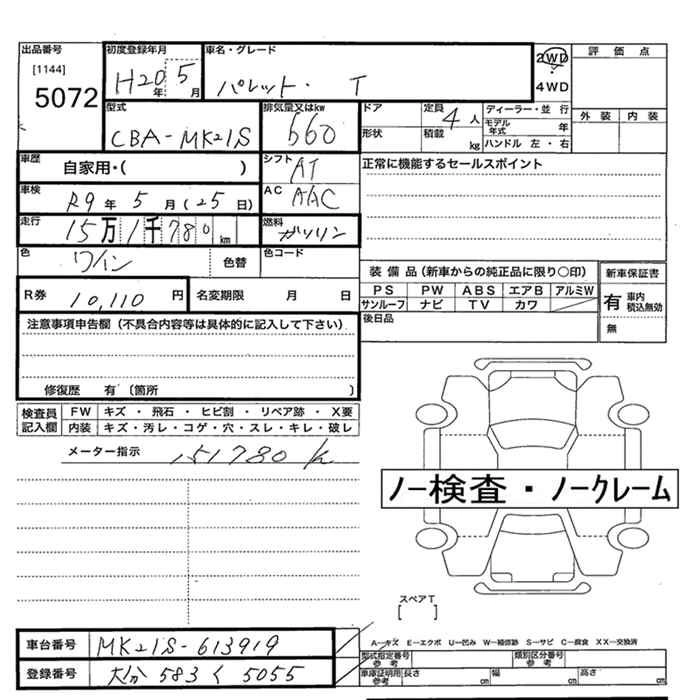 出品番号
[1144]
5072
初度登録年月
H20年 5月
車名・グレード
パレット・ T
2WD
4WD
評価点
外装 内装
型式
CBA-MK21S
排気量又はkw
660
ドア
形状
定員 4人
積載 kg
ディーラー・並行
モデル年式 年
ハンドル 左・右
車歴
自家用・( )
シフト
AT
正常に機能するセールスポイント
車検
R9年 5月(25日)
AC
AAC
走行
15万1千780km
燃料
ガソリン
色
ワイン
色替
色コード
R券
10,110円
名変期限 月 日
装備品(新車からの純正品に限り○印)
PS PW ABS エアB アルミW
サンルーフ ナビ TV カワ
後日品
新車保証書
有 車内積込無効
無
注意事項申告欄(不具合内容等は具体的に記入して下さい)
修復歴 有(箇所 )
検査員記入欄
FW キズ・飛石・ヒビ割・リペア跡・X要
内装 キズ・汚レ・コゲ・穴・スレ・キレ・破レ
メーター指示 151780K
ノー検査・ノークレーム
スペアT
[ ]
車台番号 MK21S-613919
登録番号 大分 583 く 5055
A―キズ E―エクボ U―凹み W―補修跡 S―サビ C―腐食 XX―交換済
型式指定番号 参考
類別区分番号 参考
車庫証明用 参考 長さ cm 幅 cm 高さ cm